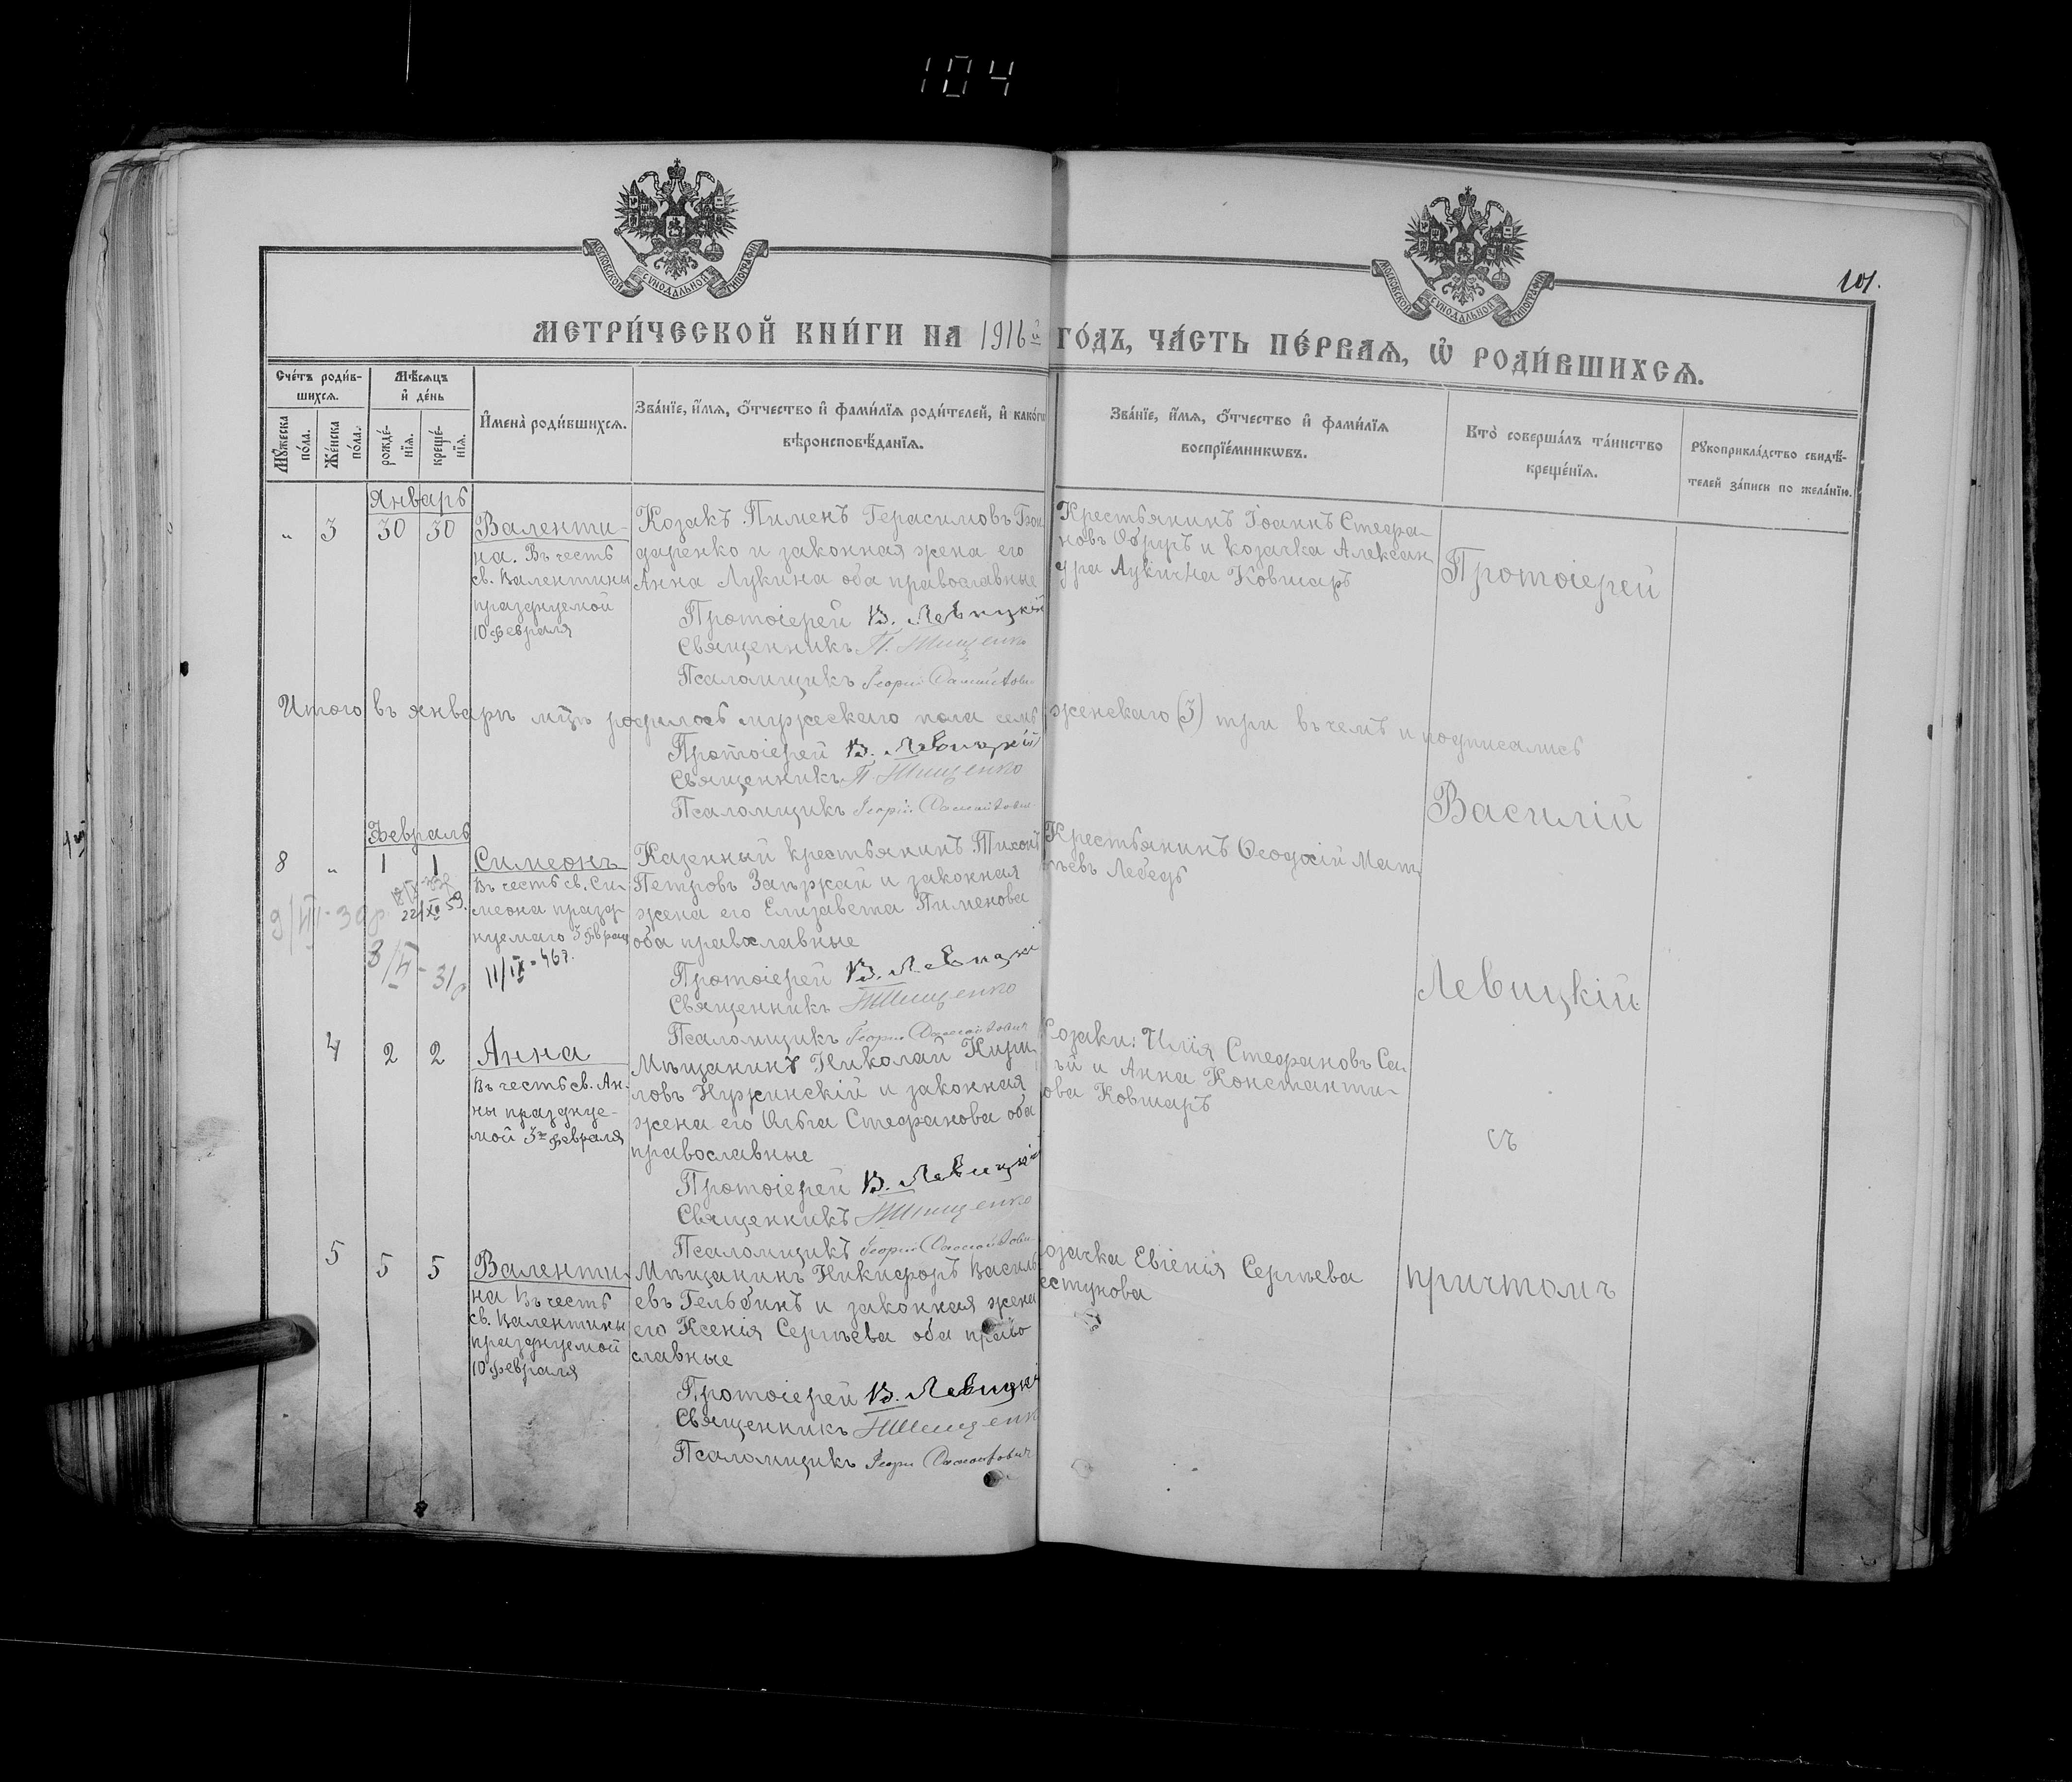 104
МОСКОВСКОЙ СУНОДАЛЬНОЙ ТИПОГРАФІИ
МОСКОВСКОЙ СУНОДАЛЬНОЙ ТИПОГРАФІИ
101.
МЕТРИ́ЧЕСКОЙ КНИ́ГИ НА 1916й ГО́ДЪ, ЧА́СТЬ ПЕ́РВАѦ, Ѽ РОДИ́ВШИХСѦ.
Сче́тъ роди́в-
шихсѧ.
Мѣ́сѧцъ
и҆ де́нь
Мꙋ́жеска
по́ла.
Же́нска
по́ла.
рожде́-
нїѧ.
креще́-
нїѧ.
И҆мена̀ роди́вшихсѧ.
Зва́нїе, и҆́мѧ, ѻ҆́тчество и҆ фами́лїѧ роди́телей, и҆ како́гѡ
вѣроисповѣ́данїѧ.
Зва́нїе, и҆́мѧ, ѻ҆́тчество и҆ фами́лїѧ
воспрїе́мникѡвъ.
Кто̀ соверша́лъ та́инство
креще́нїѧ.
Рꙋкоприкла́дство свидѣ́-
телей за́писи по жела́нїю.
Январь
„ 3 30 30
Валенти-
на. Въ честь
св. Валентины
празднуемой
10 февраля
Козакъ Пименъ Герасимовъ
даренко и законная жена его
Анна Лукина оба православные
Протоіерей В. Левицкій
Священникъ П. Тищенко
Псаломщикъ Георгій
Крестьянинъ Іоаннъ Стефа-
новъ и козачка Алексан
дра Лукична Ковшаръ
Протоіерей
Итого въ январѣ мцѣ родилось мужескаго пола семь женскаго (3) три въ чемъ и подписались
Протоіерей В. Левицкій
Священникъ П Тищенко
Псаломщикъ Георгій
Василій
Февраль
8 „ 1 1
Симеонъ
Въ честь св. Си-
меона празд-
нуемаго 3 феврал
11/IX - 46г.
22/XII 59.
9/III - 39г.
3/VI - 31г
Казенный крестьянинъ Тихонъ
Петровъ и законная
жена его Елизавета Пименова
оба православные
Протоіерей В. Левицкі
Священникъ Тищенко
Псаломщикъ Георгій
Крестьянинъ Ѳеодосій Мат
ѣевъ Лебедь
Левицкій
4 2 2
Анна
Въ честь св. Ан-
ны празднуе-
мой 3го февраля
Мѣщанинъ Николай Кирил
ловъ и законная
жена его Ольга Стефанова оба
православные
Протоіерей В. Левицкій
Священникъ Тищенко
Псаломщикъ Георгій
Козаки: Илія Стефановъ
ій и Анна Константи-
ова Ковшаръ
съ
5 5 5
Валенти-
на Въ честь
св. Валентины
празднуемой
10 февраля
Мѣщанинъ Никифоръ Василь
евъ Гельбинъ и законная жена
его Ксенія Сергѣева оба право
славные
Протоіерей В. Левицкі
Священникъ Тищенк
Псаломщикъ Георгій
озачка Евгенія Сергѣева
естунова
причтомъ